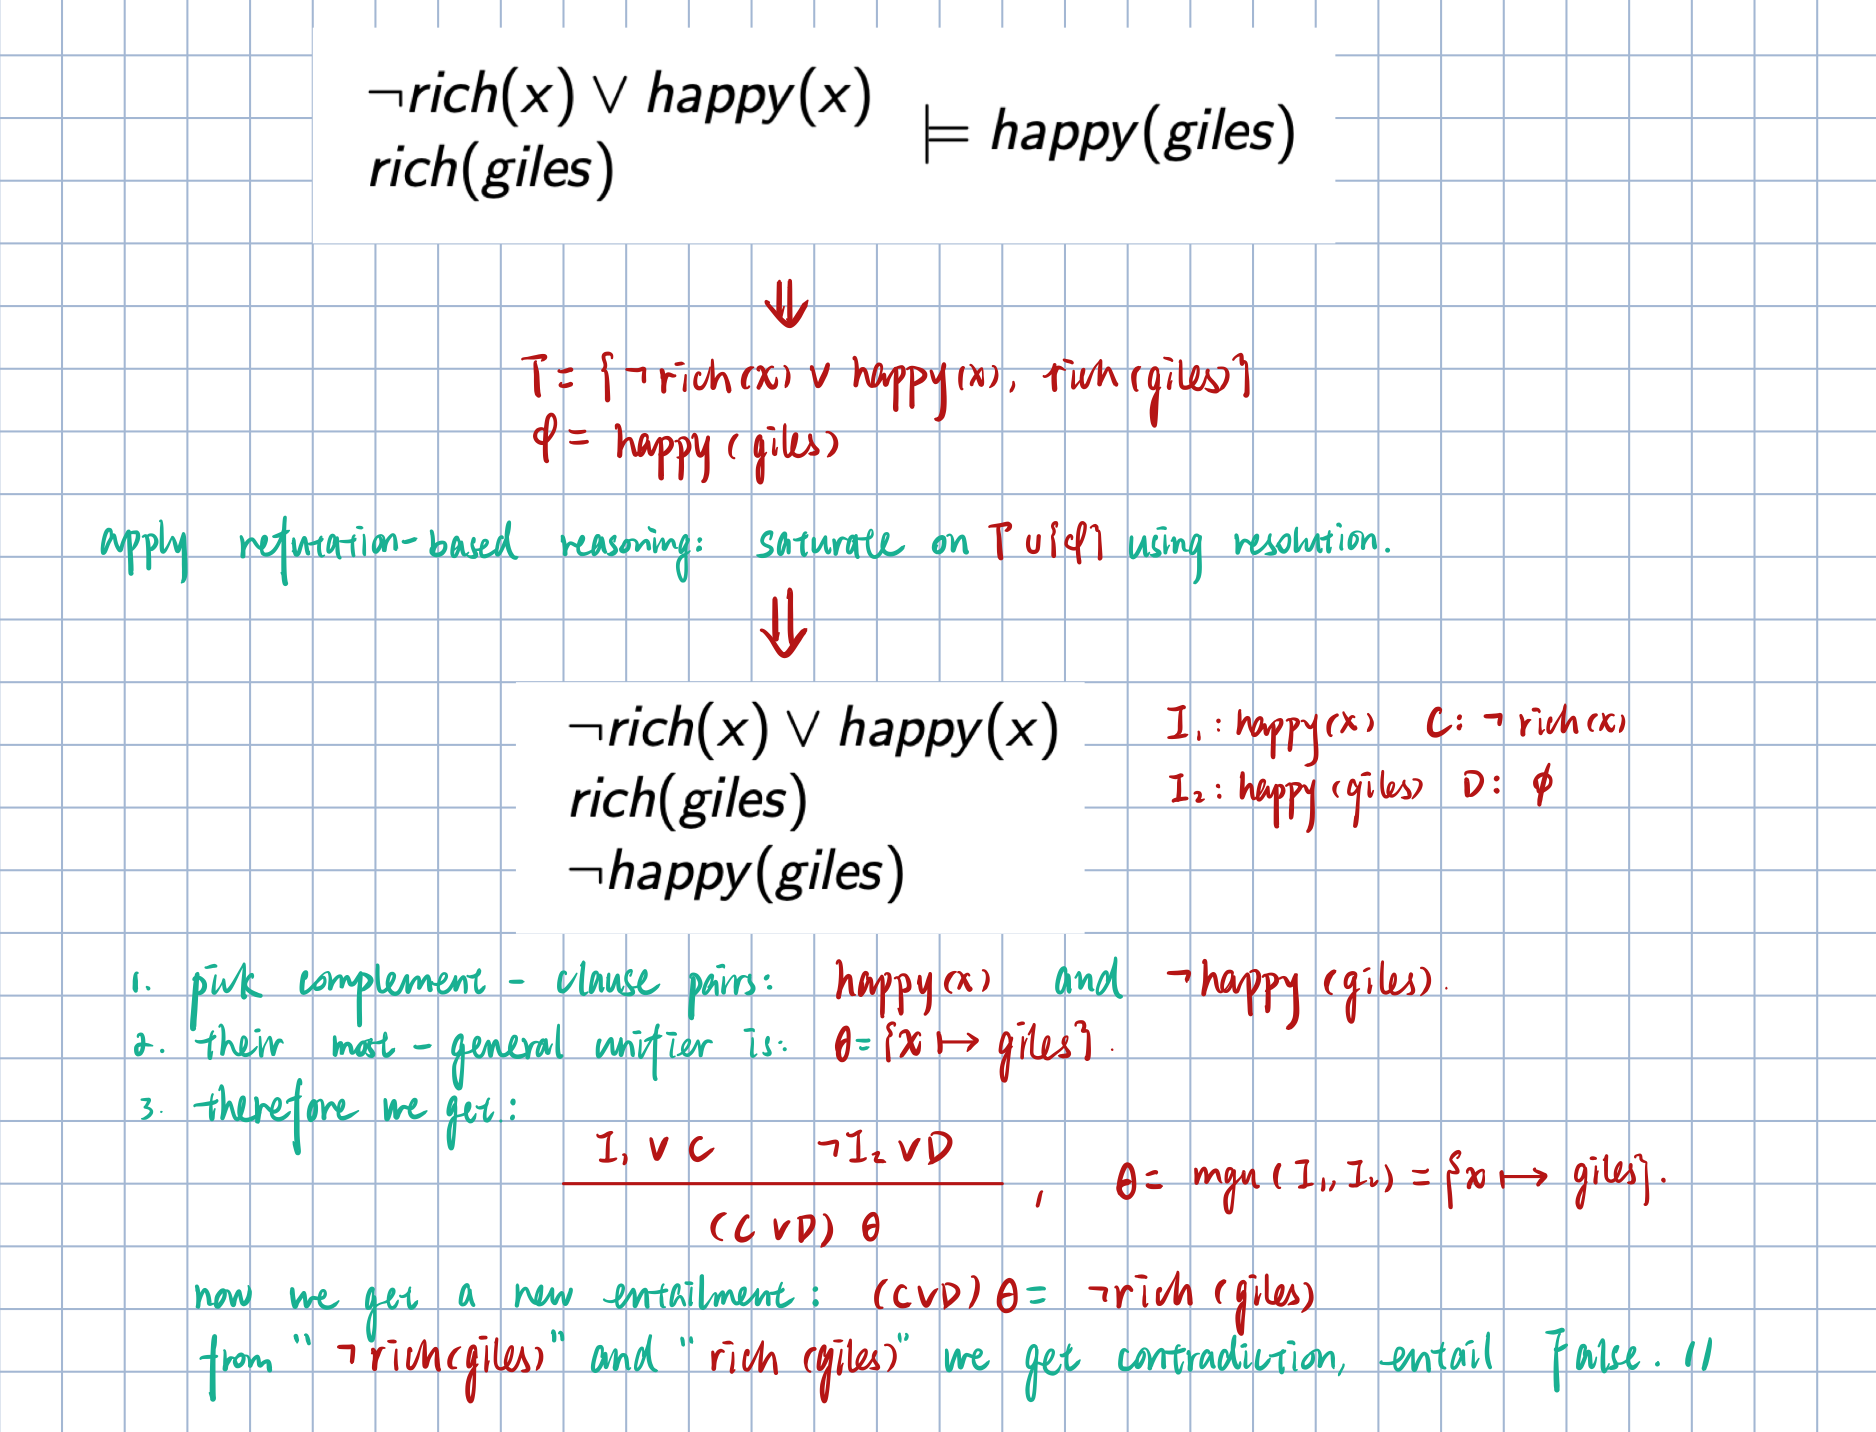 ¬rich(x) ∨ happy(x)
rich(giles)
⊨ happy(giles)
⇓
T = { ¬rich(x) ∨ happy(x), rich(giles)}
φ = happy(giles)
apply refutation-based reasoning: saturate on T ∪ {φ} using resolution.
⇓
¬rich(x) ∨ happy(x)
rich(giles)
¬happy(giles)
I₁: happy(x) C: ¬rich(x)
I₂: happy(giles) D: ϕ
1. pick complement - clause pairs: happy(x) and ¬happy(giles).
2. their most-general unifier is: θ={x ↦ giles}.
3. therefore we get:
I₁ ∨ C ¬I₂ ∨ D
(C ∨ D) θ
, θ = mgu(I₁, I₂) = {x ↦ giles}.
now we get a new entailment: (C ∨ D) θ = ¬rich(giles)
from "¬rich(giles)" and "rich(giles)" we get contradiction, entail False. //